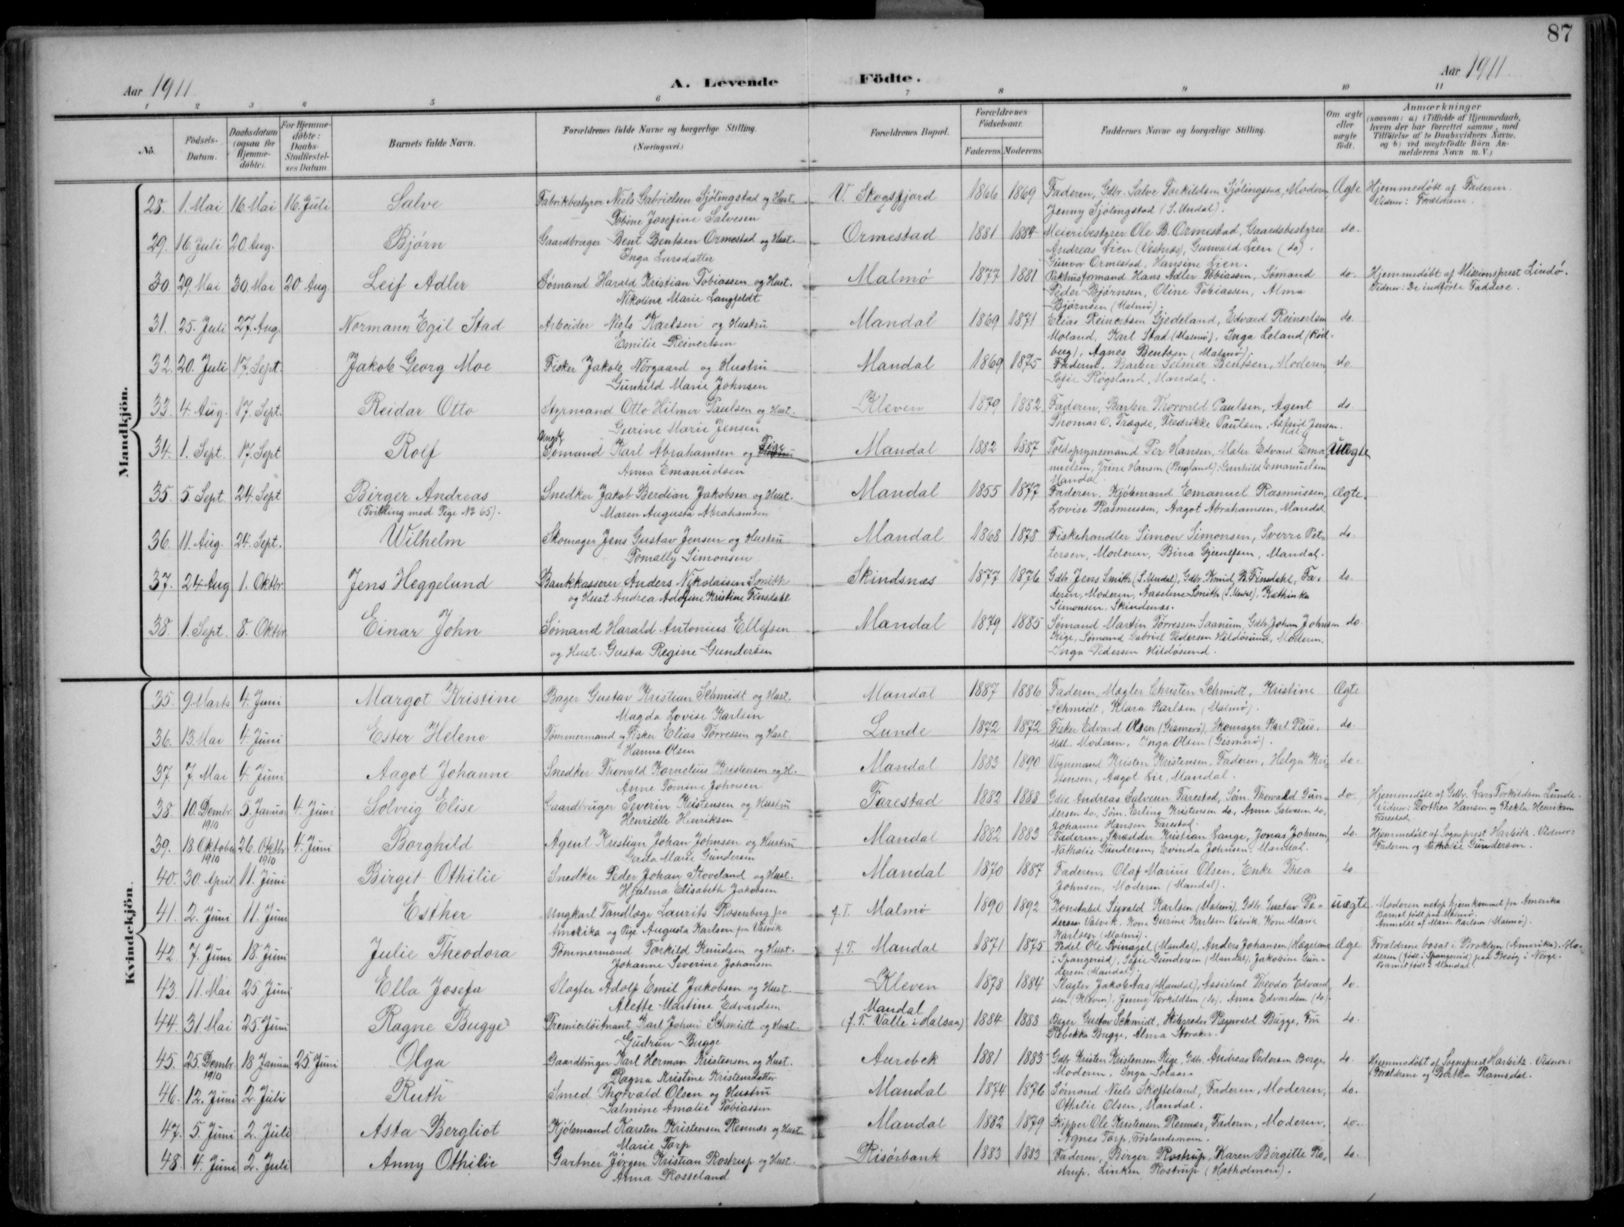 87
Aar 1911
A. Levende
Födte.
Aar 1911
1 2 3 4 5 6 7 8 9 10 11
No.
Födsels-
Datum.
Daabsdatum
(ogsaa for
Hjemme-
döbte).
For Hjemme-
döbte:
Daabs-
Stadfæstel-
ses Datum
Barnets fulde Navn.
Forældrenes fulde Navne og borgerlige Stilling.
(Næringsvei.)
Forældrenes Bopæl.
Forældrenes
Födselsaar.
Faderens. Moderens.
Faddernes Navne og borgerlige Stilling.
Om ægte
eller
uægte
födt.
Anmærkninger
(saasom: a) i Tilfælde af Hjemmedaab,
hvem der har forrettet samme, med
Tilføielse af to Daabsvidners Navne,
og b) ved uægtefödte Börn An-
melderens Navn m. V.)
Mandkjön.
28. 1. Mai 16. Mai 16. Juli Salve Fabrikbestyrer Niels Gabrielsen Sjölingstad og Hust.
Tobine Josefine Salvesen
V. Skogsfjord 1866 1869 Faderen, Gdbr. Salve Torkildsen Sjölingstad, Moderen,
Jenny Sjölingstad (S. Undal).
Ægte Hjemmedöbt af Faderen.
Vidner: Forældrene.
29. 16. Juli 20. Aug. Björn Gaardbruger Bent Bentsen Ormestad og Hust.
Inga Larsdatter
Ormestad 1881 1884 Meieribestyrer Ole B. Ormestad, Gaardsbestyrer
Andreas Lien (Vestnes), Gunvald Lien (do).
Gunvor Ormestad, Hansine Lien.
do.
30. 29. Mai 30. Mai 20 Aug Leif Adler Sömand Harald Kristian Tobiassen og Hust.
Nikoline Marie Langfeldt
Malmö 1877 1881 Hans Adler Tobiassen, Sömand
Peder Björnsen, Oline Tobiassen, Alma
Björnsen (Malmö).
do. Hjemmedöbt af Missionsprest Lindö.
Vidner: De indförte Faddere.
31. 25. Juli 27. Aug. Normann Egil Stad Arbeider Niels Karlsen og Hustru
Emilie Reinertsen
Mandal 1869 1871 Elias Reinertsen Gjedeland, Edvard Reinertsen
Moland, Karl Stad (Malmö), Inga Leland
Agnes Bentsen (Malmö).
do.
32. 20. Juli 17. Sept. Jakob Georg Moe Fisker Jakob Nörgaard og Hustru
Gunhild Marie Johnsen
Mandal 1869 1875 Faderen, Barber Selmer Bentsen, Moderen
Sofie Rogsland, Mandal.
do
33. 4 Aug. 17. Sept. Reidar Otto Styrmand Otto Hilmer Paulsen og Hust.
Gurine Marie Jensen
Kleven 1879 1882 Faderen, Barber Thorvald Paulsen, Agent
Thomas O. Trægde, Fredrikke Paulsen, Jensen
do
34. 1. Sept. 17. Sept Rolf Ungk. Sömand Karl Abrahamsen og Pige
Anna Emanuelsen
Mandal 1882 1887 Toldopsynsmand Per Hansen, Maler Edvard Ema-
nuelsen, Trine Hansen Gunhild Emanuelsen
Mandal
Uægte
35. 5 Sept. 24. Sept Birger Andreas
(Tvilling med Pige No 65).
Snedker Jakob Berdian Jakobsen og Hust.
Maren Augusta Abrahamsen
Mandal 1855 1877 Faderen, Kjöbmand Emanuel Rasmussen,
Lovise Rasmussen, Aagot Abrahamsen, Mandal
Ægte
36. 11 Aug. 24. Sept. Wilhelm Skomager Jens Gustav Jensen og Hustru
Simonsen
Mandal 1868 1878 Fiskehandler Simon Simonsen, Sverre Pet-
tersen, Moderen, Bina Mandal.
do.
37. 24 Aug 1. Oktbr. Jens Heggelund Bankkasserer Anders Nikolaisen Smith
og Hust Andrea Adofine Kristine Finsdahl
Skindsnæs 1877 1876 Gdbr. Jens Smith (S. Undal), Gdbr. Knud Finsdahl, Fa-
deren, Moderen, Aaseline Smith (S. Undal), Kathinka
Simonsen, Skindsnæs.
do.
38. 1. Sept. 8. Oktbr. Einar John Sömand Harald Antonius Ellefsen
og Hust. Gusta Regine Gundersen
Mandal 1879 1885 Sömand Martin Torvessen Saanum, Gdb. Johan Johnsen
Rige, Sömand Gabriel Pedersen Hildösund, Moderen,
Inga Pedersen Hildösund.
do.
Kvindekjön.
35. 9. Marts 4. Juni Margot Kristine Bager Gustav Kristian Schmidt og Hust.
Magda Lovise Karlsen
Mandal 1887 1886 Faderen, Mægler Christen Schmidt, Kristine
Schmidt, Klara Karlsen (Malmö).
Ægte
36. 13. Mai 4. Juni Ester Helene Tömmermand og Fisker Elias Torvessen og Hust.
Hanna Olsen
Lunde 1872 1872 Fisker Edvard Olsen (Gismerö), Skomager Karl
Moderen, Inga Olsen (Gismerö).
do.
37. 7. Mai 4. Juni Aagot Johanne Snedker Thorvald Kornelius Kristensen og H.
Anne Tomine Johnsen
Mandal 1883 1890 Kristen Kristensen, Faderen, Helga Kri-
stensen, Aagot Lie, Mandal.
do.
38. 10. Decmbr. 1910 5 Januar 4. Juni Solveig Elise Gaardbruger Severin Kristensen og Hustru
Henriette Henriksen
Farestad 1882 1888 Gdbr. Andreas Salvesen Farestad, Söm. Thorvald Gun-
dersen do, Söm. Erling Kristensen do, Anna Salvesen do,
Johanne Hansen Farestad
do. Hjemmedöbt af Gdbr. Lars Torkildsen Lunde.
Vidner: Dorthea Hansen og Thekla Henriksen
Farestad.
39. 18 Oktober 1910 26. Oktbr 1910 4. Juni Borghild Agent Kristian Johan Johnsen og Hustru
Gerda Marie Gundersen
Mandal 1882 1883 Faderen, Skrædder Kristian Lange, Jonas Johnsen,
Nathalie Gundersen, Evinda Johnsen, Mandal.
do. Hjemmedöbt af Sogneprest Harbitz. Vidner:
Faderen og Ethalie Gundersen.
40. 30. April 11. Juni Birgit Othilie Snedker Peder Johan Stoveland og Hust.
Hjalma Elisabeth Jakobsen
Mandal 1870 1887 Faderen, Olaf Marius Olsen, Enke Thea
Johnsen, Moderen (Mandal).
do.
41. 2. Juni 11. Juni Esther Ungkarl Tandlæge Laurits Rosenberg fra
Amerika og Pige Augusta Karlsen fra Valvik
f. T. Malmö 1890 1892 Konstabel Sigvald Karlsen (Malmö), Gdbr. Gustav Pe-
dersen Valvik, Kone Gurine Karlsen Valvik, Kone Marie
Karlsen (Malmö).
uægte Moderen netop hjemkommet fra Amerika
Barnet födt paa Malmö.
Anmeldt af Marie Karlsen (Malmö).
42. 7. Juni 18. Juni Julie Theodora Tömmermand Torkild Knudsen og Hust.
Johanne Severine Johansen
f. T. Mandal 1871 1875 Pedel Ole Svinagel (Mandal), Anders Johansen,
i Spangereid, Sofie Gundersen (Mandal), Jakobine Gun-
dersen (Mandal).
Ægte Forældrene bosat i Broklyn (Amerika). Mo-
deren (född i Spangereid) paa Besög i Norge.
Barnet födt i Mandal.
43. 11. Mai 25 Juni Ella Josefa Slagter Adolf Emil Jakobsen og Hust.
Alette Martine Edvardsen
Kleven 1878 1884 Slagter Jakob Aas (Mandal), Assistent Theodor Edvard-
sen (Kleven), Jenny Torkildsen (do), Anna Edvardsen (do).
do.
44. 31 Mai 25 Juni Ragne Bugge Premierlöitnant Karl Johan Schmidt og Hust.
Gudrun Bugge
Mandal
(f. T. Valle i Halsaa) 1884 1888 Bager Gustav Schmidt, Skibsreder Ragnvald Bugge, Fru
Rebekka Bugge, Alma
do.
45. 25. Decmbr. 1910 18 Januar 25 Juni Olga Gaardbruger Karl Herman Kristensen og Hust.
Ragna Kristine Kristensdatter
Aurebek 1881 1883 Gdbr. Kristen Kristensen Rige, Gdb. Andreas Pedersen Berge,
Moderen, Inga Solaas.
do. Hjemmedöbt af Sogneprest Harbitz. Vidner:
Forældrene og Berthe Ramsdal.
46. 12. Juni 2. Juli Ruth Smed Thorvald Olsen og Hustru
Salmine Amalie Tobiassen
Mandal 1874 1876 Sömand Niels Skofteland, Faderen, Moderen,
Othelie Olsen, Mandal.
do.
47. 5. Juni 2. Juli Asta Bergliot Kjöbmand Karsten Kristensen Rennæs og Hust.
Marie Torp
Mandal 1882 1879 Skipper Ole Kristensen Rennæs, Faderen, Moderen,
Agnes Torp,
do.
48. 4. Juni 2. Juli Anny Othilie Gartner Jörgen Kristian Rostrup og Hust.
Anna Rosseland
Risörbank 1883 1883 Faderen, Birger Rostrup, Karen Birgitte Ro-
strup, Linken Rostrup (Hatholmen).
do.